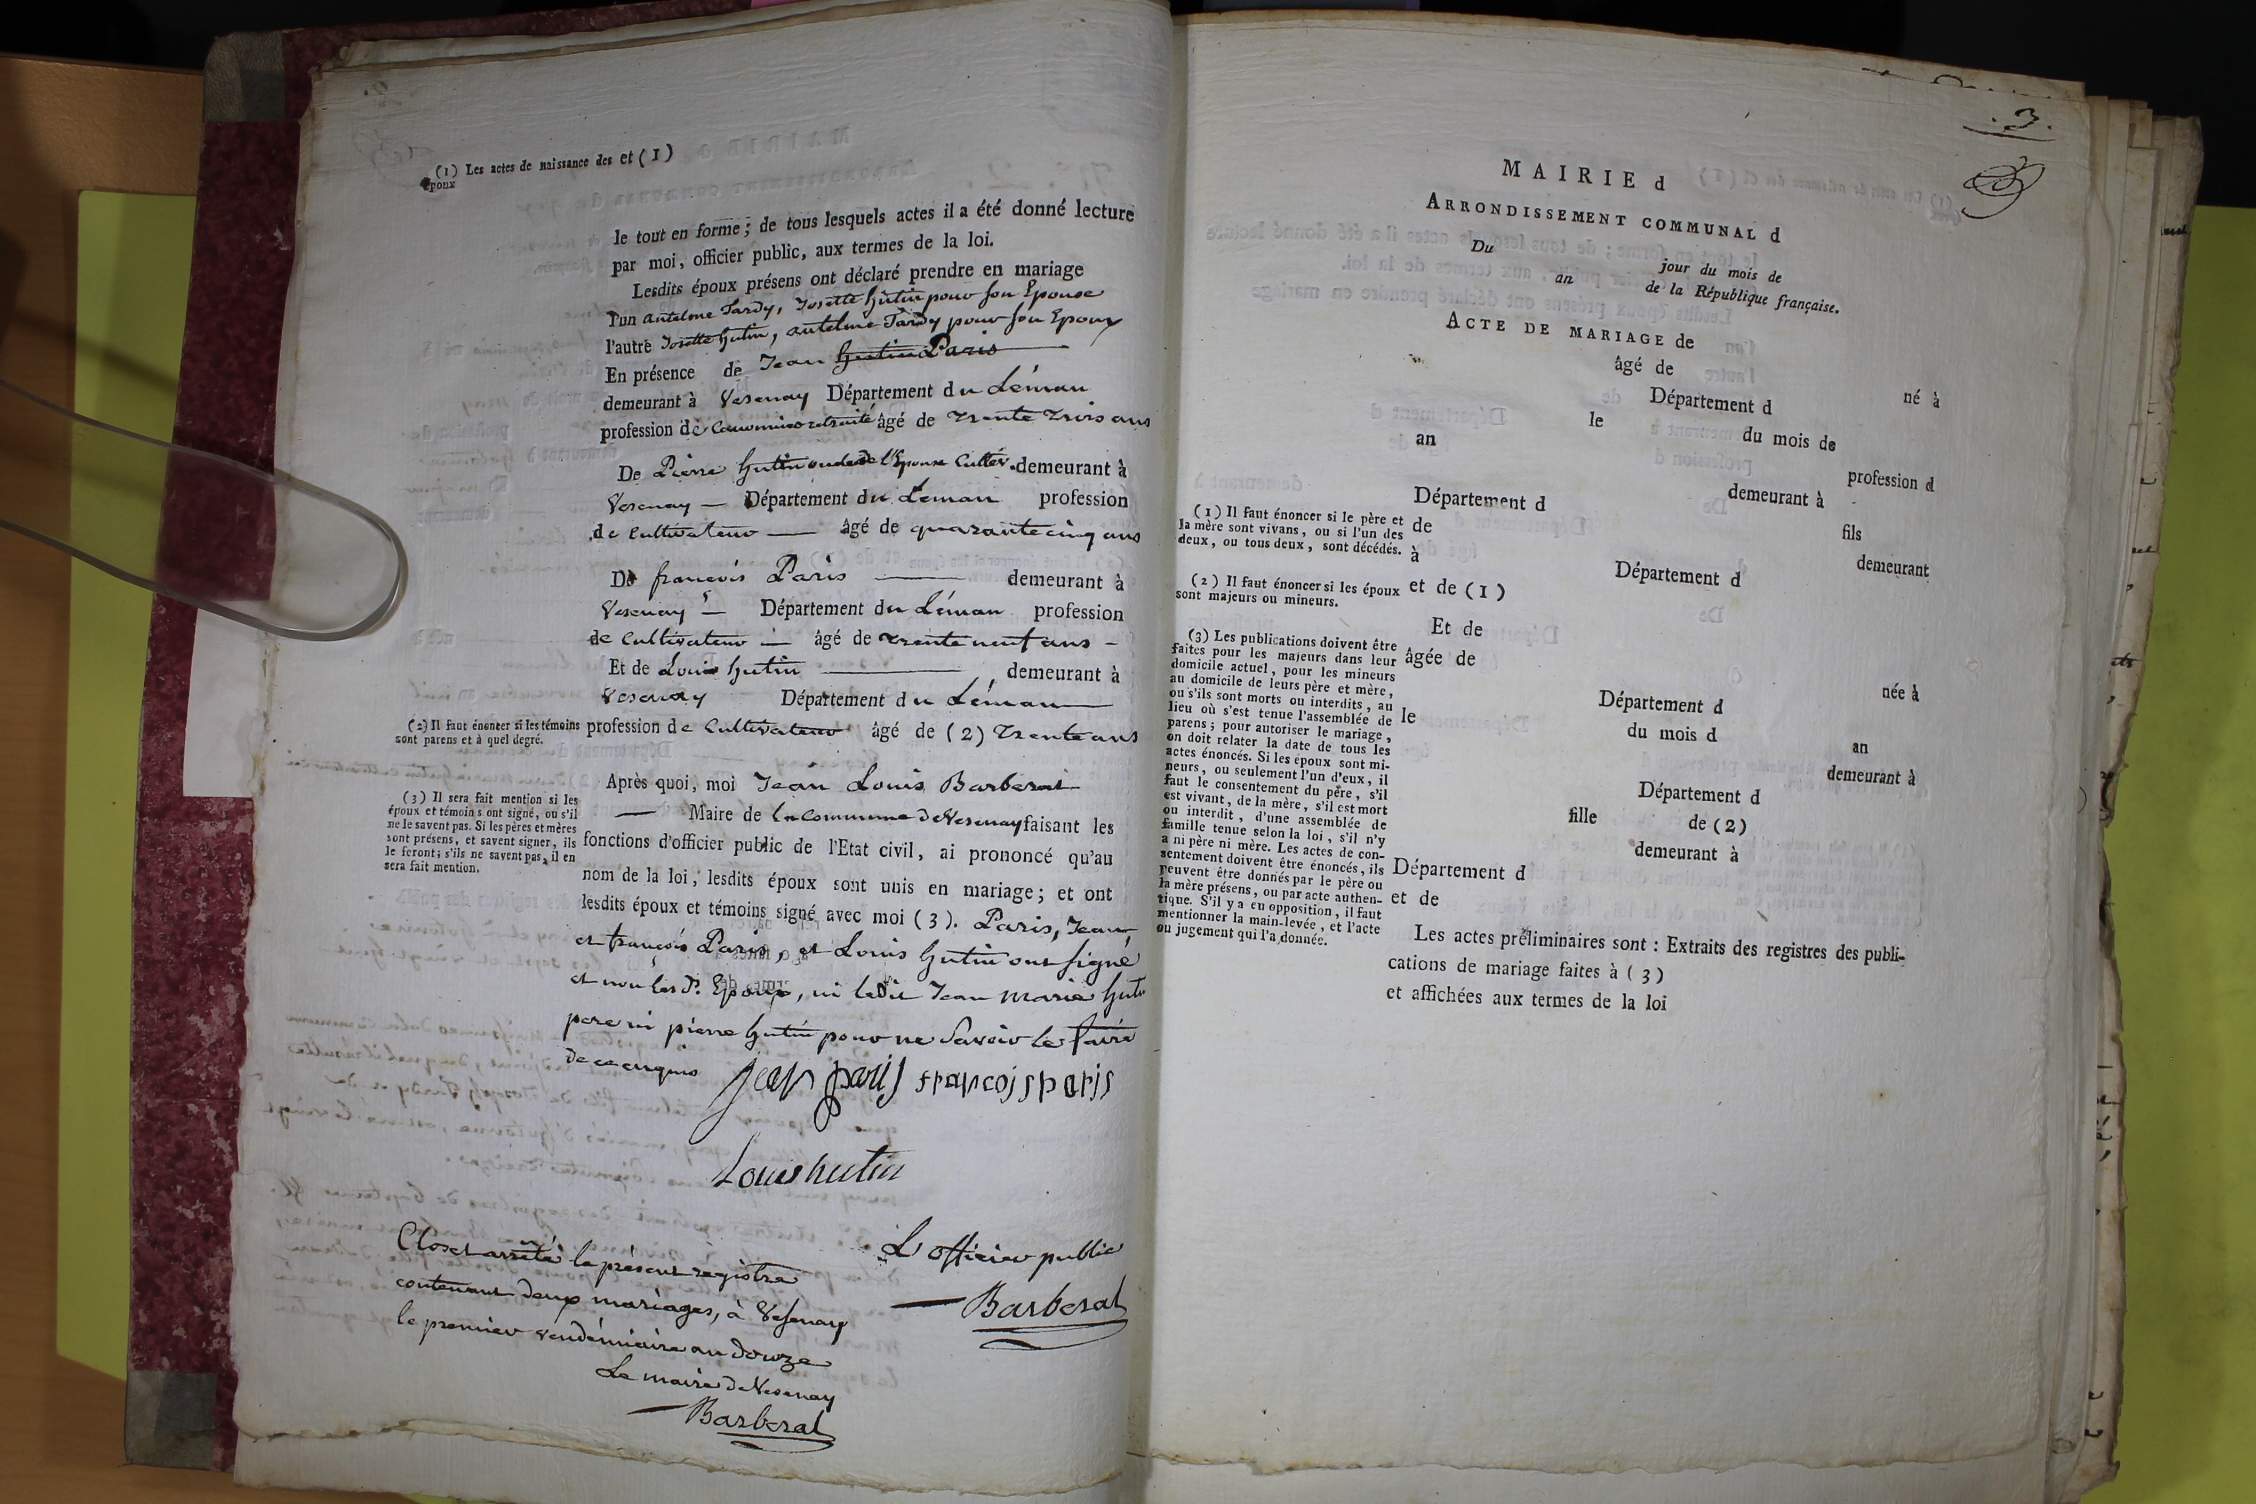 (1) Les actes de naissance des et (1)
époux
le tout en forme; de tous lesquels actes il a été donné lecture
par moi, officier public, aux termes de la loi.
Lesdits époux présens ont déclaré prendre en mariage
l'un antelme Tardy, Josette hutin pour son Epouse
l'autre Josette hutin, antelme Tardy pour son Epoux
En présence de Jean hutin Paris
demeurant à Vesenay Département du Léman
profession de Canonnier retraité âgé de trente trois ans
De Pierre hutin oncle de l'Epouse Cultiv. demeurant à
Vesenay — Département du Léman profession
de Cultivateur — âgé de quarante cinq ans
De francois Paris — demeurant à
Vesenay — Département du Léman profession
de Cultivateur — âgé de trente neuf ans -
Et de Louis hutin — demeurant à
Vesenay Département du Léman
(2) Il faut énoncer si les témoins
sont parens et à quel degré.
profession de Cultivateur âgé de (2) Trente ans
Après quoi, moi Jean Louis Barberat
— Maire de la Commune de Vesenay faisant les
(3) Il sera fait mention si les
époux et témoins ont signé, ou s'il
ne le savent pas. Si les pères et mères
sont présens, et savent signer, ils
le feront; s'ils ne savent pas, il en
sera fait mention.
fonctions d'officier public de l'Etat civil, ai prononcé qu'au
nom de la loi, lesdits époux sont unis en mariage; et ont
lesdits époux et témoins signé avec moi (3). Paris, Jean,
et françois Paris, et Louis hutin ont signé
et non les d. Epoux, ni ledit Jean marie hutin
pere ni pierre hutin pour ne savoir le faire
de ce enquis
jean paris francois paris
Louis hutin
L'officier public
Barberat
Clos et arrêté le présent registre
contenant deux mariages, à Vesenay
le premier vendémiaire an douze
Le maire de Vesenay
Barberat
.3.
MAIRIE d
ARRONDISSEMENT COMMUNAL d
Du jour du mois de
an de la République française.
ACTE DE MARIAGE de
âgé de
Département d né à
le du mois de
an
profession d
Département d demeurant à
(1) Il faut énoncer si le père et
la mère sont vivans, ou si l'un des
deux, ou tous deux, sont décédés.
de fils
à Département d demeurant
(2) Il faut énoncer si les époux
sont majeurs ou mineurs.
et de (1)
Et de
âgée de
Département d née à
le du mois d an
demeurant à
Département d
fille de (2)
demeurant à
Département d
et de
(3) Les publications doivent être
faites pour les majeurs dans leur
domicile actuel, pour les mineurs
au domicile de leurs père et mère,
ou s'ils sont morts ou interdits, au
lieu où s'est tenue l'assemblée de
parens; pour autoriser le mariage,
on doit relater la date de tous les
actes énoncés. Si les époux sont mi-
neurs, ou seulement l'un d'eux, il
faut le consentement du père, s'il
est vivant, de la mère, s'il est mort
ou interdit, d'une assemblée de
famille tenue selon la loi, s'il n'y
a ni père ni mère. Les actes de con-
sentement doivent être énoncés, ils
peuvent être donnés par le père ou
la mère présens, ou par acte authen-
tique. S'il y a eu opposition, il faut
mentionner la main-levée, et l'acte
ou jugement qui l'a donnée.
Les actes préliminaires sont : Extraits des registres des publi-
cations de mariage faites à (3)
et affichées aux termes de la loi